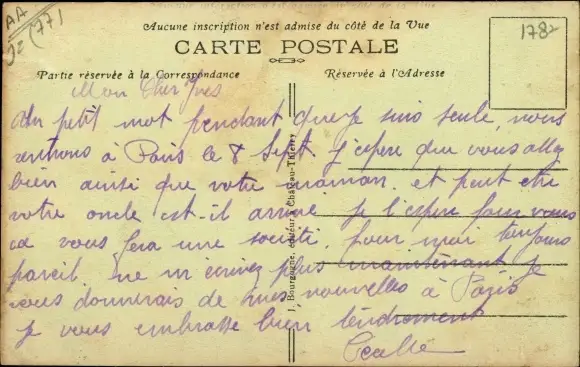 AA
1782
Aucune inscription n'est admise du côté de la Vue
CARTE POSTALE
Partie réservée à la Correspondance
Réservée à l'Adresse
J. Bourgogne, éditeur à Château-Thierry
Mon Cher Yves
Un petit mot pendant que je suis seule, nous
rentrons à Paris le 8 Sept. j'espère que vous allez
bien ainsi que votre maman. et peut être
votre oncle est-il arrivé je l'espère pour vous
ça vous fera une société. pour moi toujours
pareil. ne m'écrivez plus maintenant je
vous donnerais de mes nouvelles à Paris
je vous embrasse bien tendrement